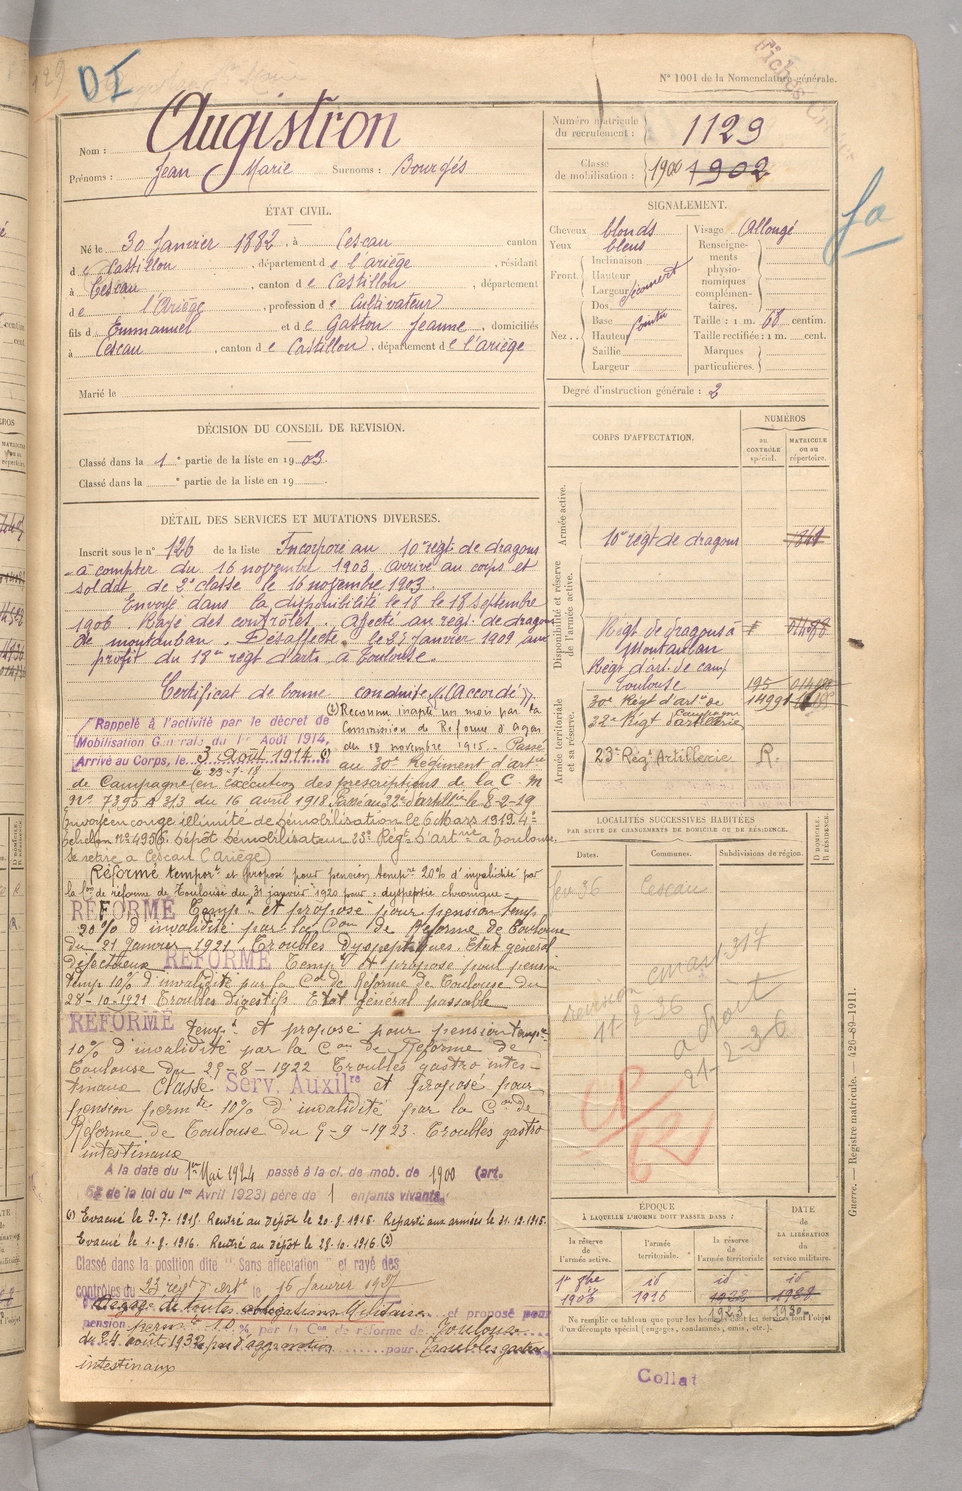 DI
N° 1001 de la Nomenclature générale.
Nom : Augistron
Prénoms : Jean Marie Surnoms : Bourgés
Numéro matricule du recrutement : 1129
Classe de mobilisation : 1900 1902
ÉTAT CIVIL.
Né le 30 Janvier 1882, à Cescau canton
de Castillon, département de l'ariège, résidant
à Cescau, canton de Castillon, département
de l'Ariège, profession de Cultivateur
fils d'Emmanuel et de Gaston Jeanne, domiciliés
à Cescau, canton de Castillon, département de l'ariège
Marié le
SIGNALEMENT.
Cheveux blonds
Yeux bleus
Front Inclinaison
Hauteur
Largeur Découvert
Nez Dos
Base
Hauteur
Saillie
Largeur
Visage Allongé
Renseignements physionomiques complémentaires.
Taille : 1 m. 68 centim.
Taille rectifiée : 1 m. cent.
Marques particulières.
Degré d'instruction générale : 2
fa
DÉCISION DU CONSEIL DE REVISION.
Classé dans la 1e partie de la liste en 1903.
Classé dans la e partie de la liste en 19
DÉTAIL DES SERVICES ET MUTATIONS DIVERSES.
Inscrit sous le n° 126 de la liste Incorporé au 10e régt de dragons
à compter du 16 novembre 1903 arrivé au corps et
soldat de 2e classe le 16 novembre 1903.
Envoyé dans la disponibilité le 18 le 18 septembre
1906. Rayé des contrôles. affecté au régt de dragons
de montauban. Désaffecté le 25 janvier 1909 au
profit du 18e régt d'art. à Toulouse.
Certificat de bonne conduite "Accordé".
Rappelé à l'activité par le décret de
Mobilisation Générale du 1er Août 1914,
Arrivé au Corps, le 3 Août 1914 (1)
(2) Reconnu inapte un mois par la
Commission de Réforme d'agen
du 18 novembre 1915. Passé
le 23-7-18
au 30e Régiment d'artie
de Campagne (en exécution des prescriptions de la C. M
N° 7395 A 3/3 du 16 avril 1918 Passé au 22e d'artillie le 8-2-19
Envoyé en congé illimité de démobilisation le 6 Mars 1919 4e
échelon n° 4956 Dépôt démobilisateur 23e Régt d'artie à Toulouse
se retire à Cescau (Ariège)
Réformé temport et proposé pour pension tempre 20% d'invalidité par
la Con de réforme de Toulouse du 31 janvier 1920 pour : dyspepsie chronique
RÉFORMÉ Tempt et proposé pour pension temp
20% d'invalidité par la Con de Réforme de Toulouse
du 21 Janvier 1921 Troubles Dyspeptiques. Etat général
défectueux RÉFORMÉ Tempt et proposé pour pension
temp 10% d'invalidité par la Con de Réforme de Toulouse du
28-10-1921 Troubles digestifs Etat général passable
RÉFORMÉ tempt et proposé pour pension tempre
10% d'invalidité par la Con de Réforme de
Toulouse du 29-8-1922 Troubles gastro intes-
tinaux Classé Serv. Auxilre et proposé pour
pension permte 10% d'invalidité par la Con de
Réforme de Toulouse du 5-9-1923. Troubles gastro
intestinaux
A la date du 1er Mai 1924 passé à la cl. de mob. de 1900 (art.
58 de la loi du 1er Avril 1923) père de 1 enfants vivants.
(1) Evacué le 9.7.1915. Rentré au Dépôt le 20.8.1915. Reparti aux armées le 31.12.1915.
Evacué le 1.8.1916. Rentré au Dépôt le 28.10.1916 (2)
Classé dans la position dite "Sans affectation" et rayé des
contrôles du 23 régt d'art le 16 Janvier 1927
Dégagé de toutes obligations Militaires et proposé pour
pension permte 10 % par la Con de réforme de Toulouse
du 24 août 1932 pour troubles gastro
intestinaux
CORPS D'AFFECTATION.
NUMÉROS
au CONTRÔLE spécial.
MATRICULE ou au répertoire.
Armée active.
10e régt de dragons
Disponibilité et réserve de l'armée active.
Régt de dragons à
Montauban
Régt d'art. de camp
Toulouse 195
Armée territoriale et sa réserve.
30e Régt d'artie de Campagne
22e Régt d'artillerie
23e Régt Artillerie R.
LOCALITÉS SUCCESSIVES HABITÉES
PAR SUITE DE CHANGEMENTS DE DOMICILE OU DE RÉSIDENCE.
Dates. Communes. Subdivisions de région. D DOMICILE. R RÉSIDENCE.
fev 36 Cescau
revision
11-2-36
a droit
21-2-36
ÉPOQUE
À LAQUELLE L'HOMME DOIT PASSER DANS :
la réserve de l'armée active. l'armée territoriale. la réserve de l'armée territoriale
DATE de LA LIBÉRATION du service militaire.
1er 9bre 1906
id 1916
id 1922 1923
id 1928 1930
Ne remplir ce tableau que pour les hommes dont les services font l'objet
d'un décompte spécial (engagés, condamnés, omis, etc.).
Collat
Guerre. — Registre matricule. — 426-89-1911.